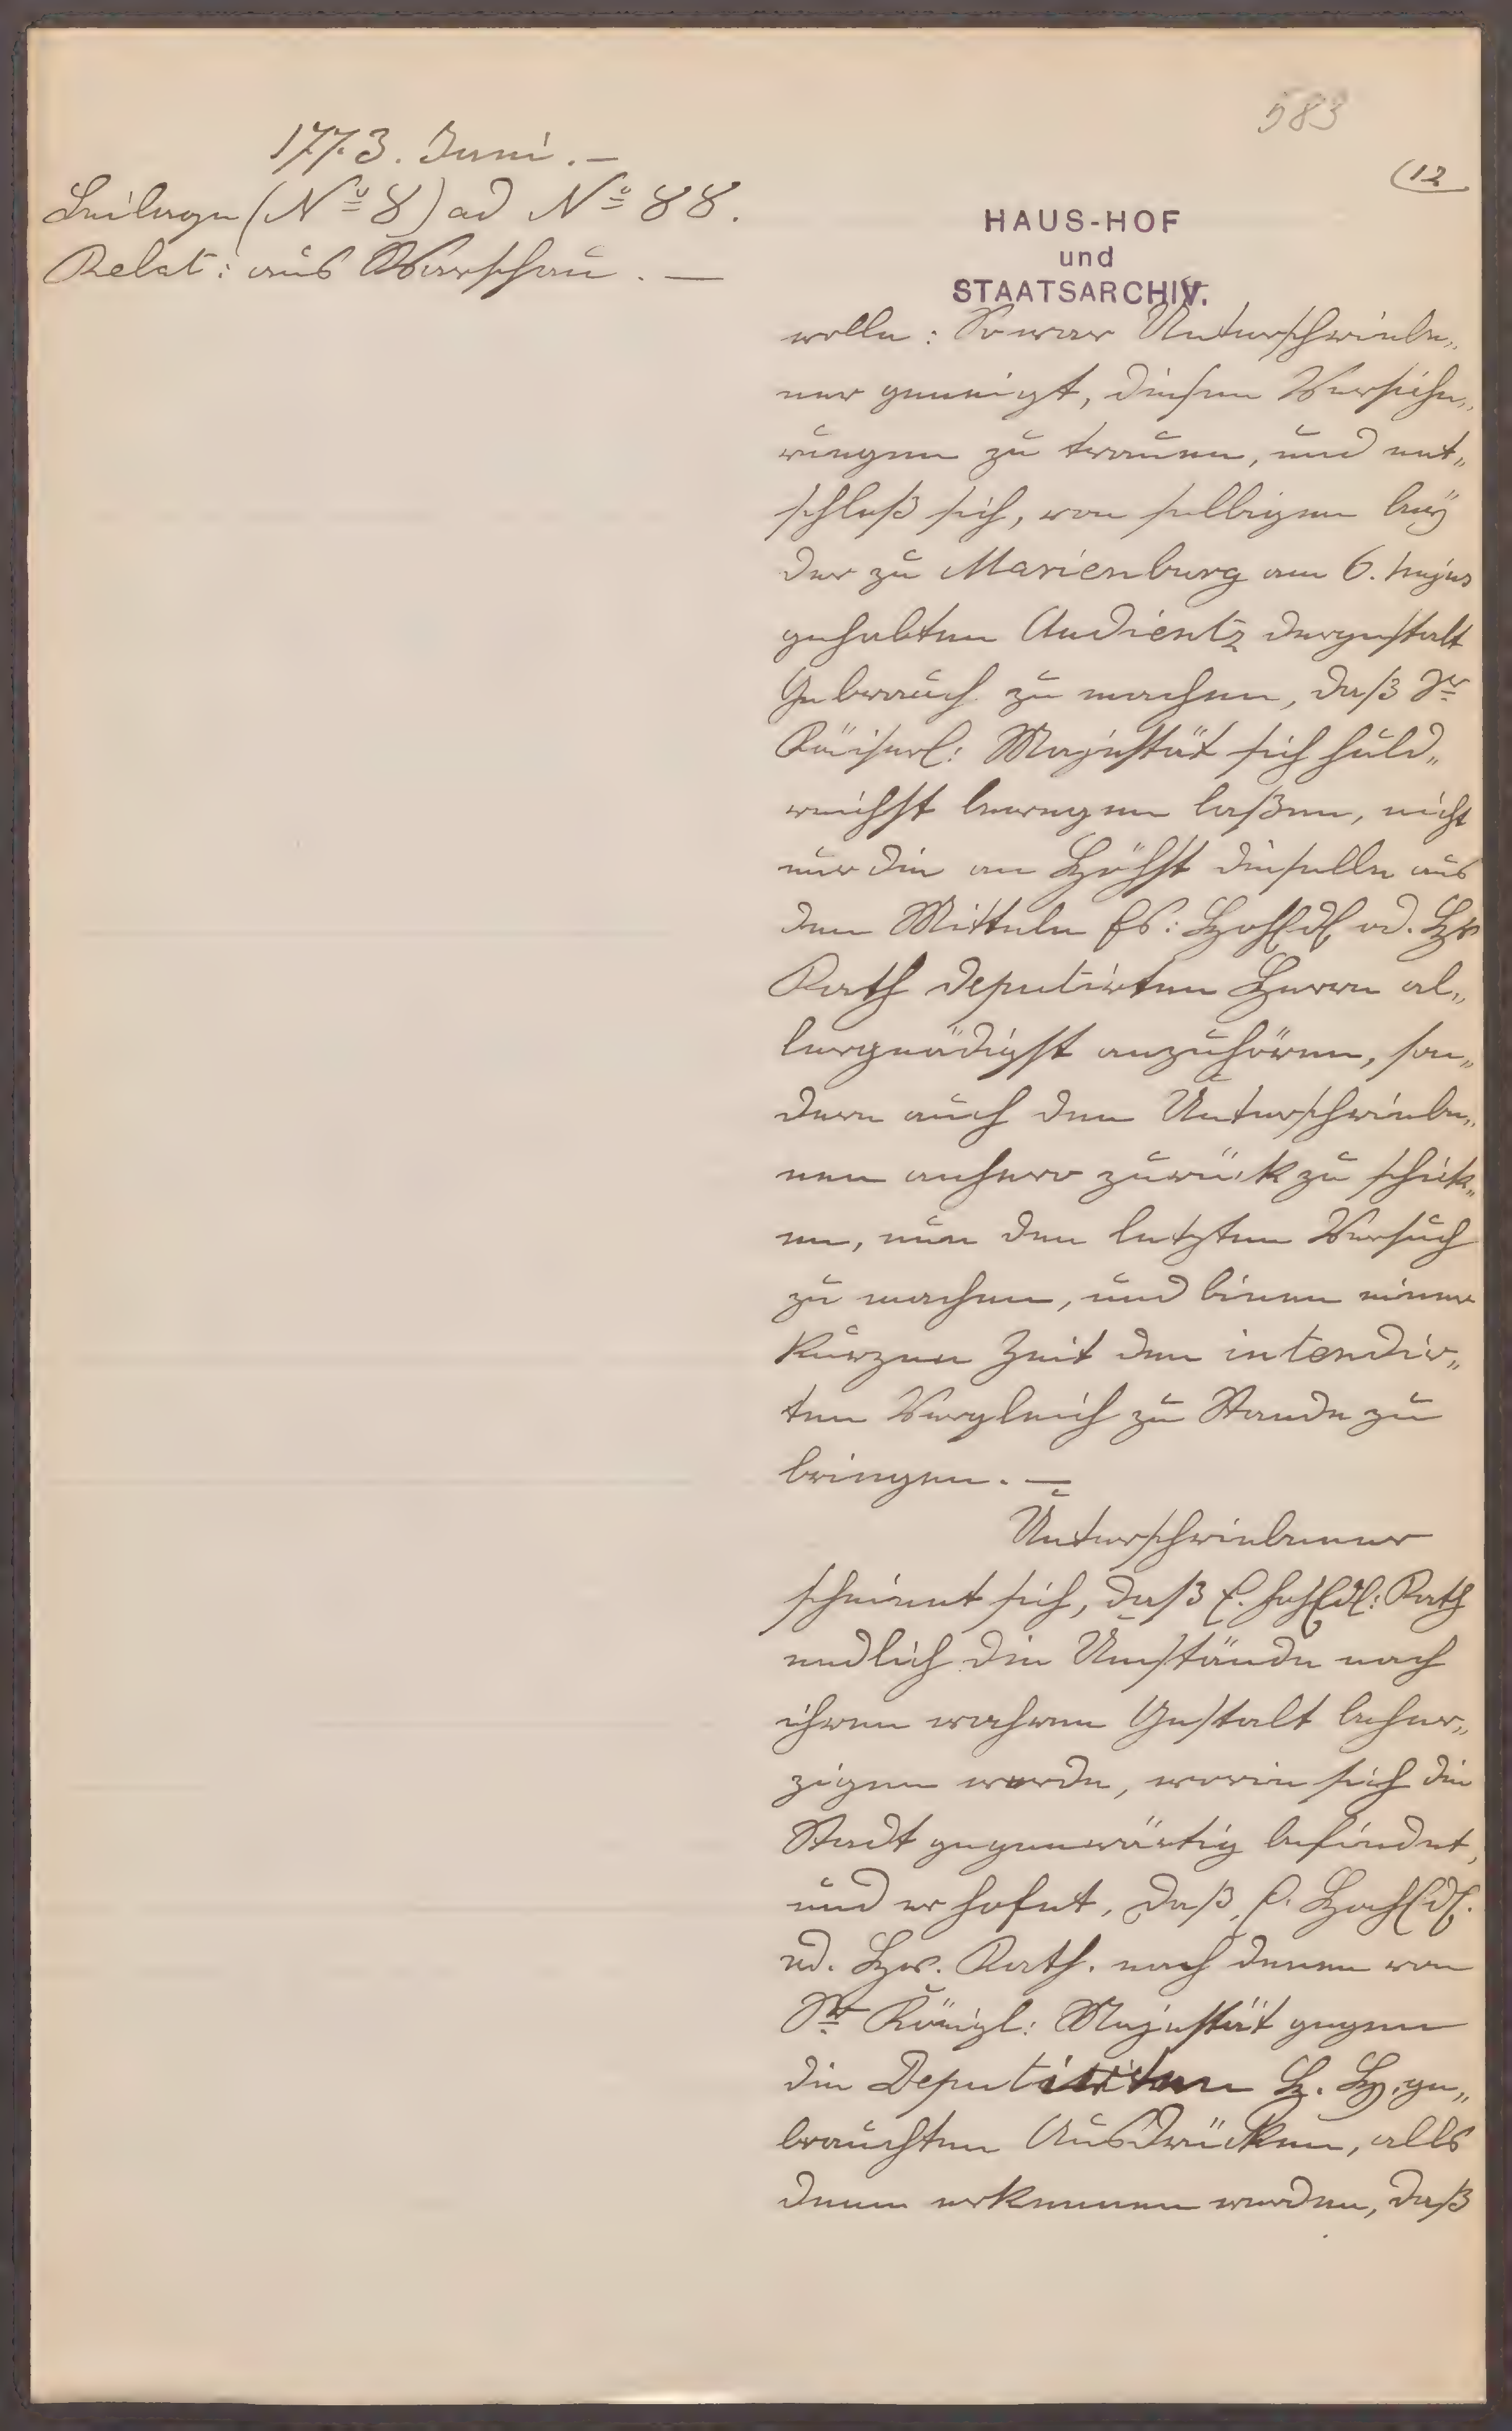 583
(12
1773. Juni. —
Beilage (No 8) ad No 88.
Relat: aus Warschau. —
HAUS-HOF
und
STAATSARCHIV.
wolle: So war Unterschriebe„
ner geneigt, diesen Versiche„
rungen zu trauen, und ent„
schloß sich, von selbigen beÿ
der zu Marienburg am 6. hujus
gehabten Audientz dergestalt
Gebrauch zu machen, daß Sr
Käiserl: Majestät sich huld„
reichst bewegen laßen, nicht
nur die an Höchst dieselbe aus
dem Mitteln Es: HochEdl. od. Hw
Rath deputirten Herrn al„
lergnädigst anzuhören, son„
dern auch den Unterschriebe„
nen anhero zurück zu schik„
en, um den letzten Versuch
zu machen, und binen einer
kurzen Zeit den intendir„
ten Vergleich zu Stande zu
bringen. —
Unterschriebener
scheinet sich, daß E. hochEdl: Rath
endlich die Umstände nach
ihren wahren Gestalt beher„
zigen werde, worin sich die
Stadt gegenwärtig befindet,
und er hofet, daß, E. HochEdl.
ud. Hw. Rath. nach denen von
Sr Königl: Majestät gegen
die Deputirten H. H. ge„
brauchten Ausdrücken, alls
denn erkennen werden, daß